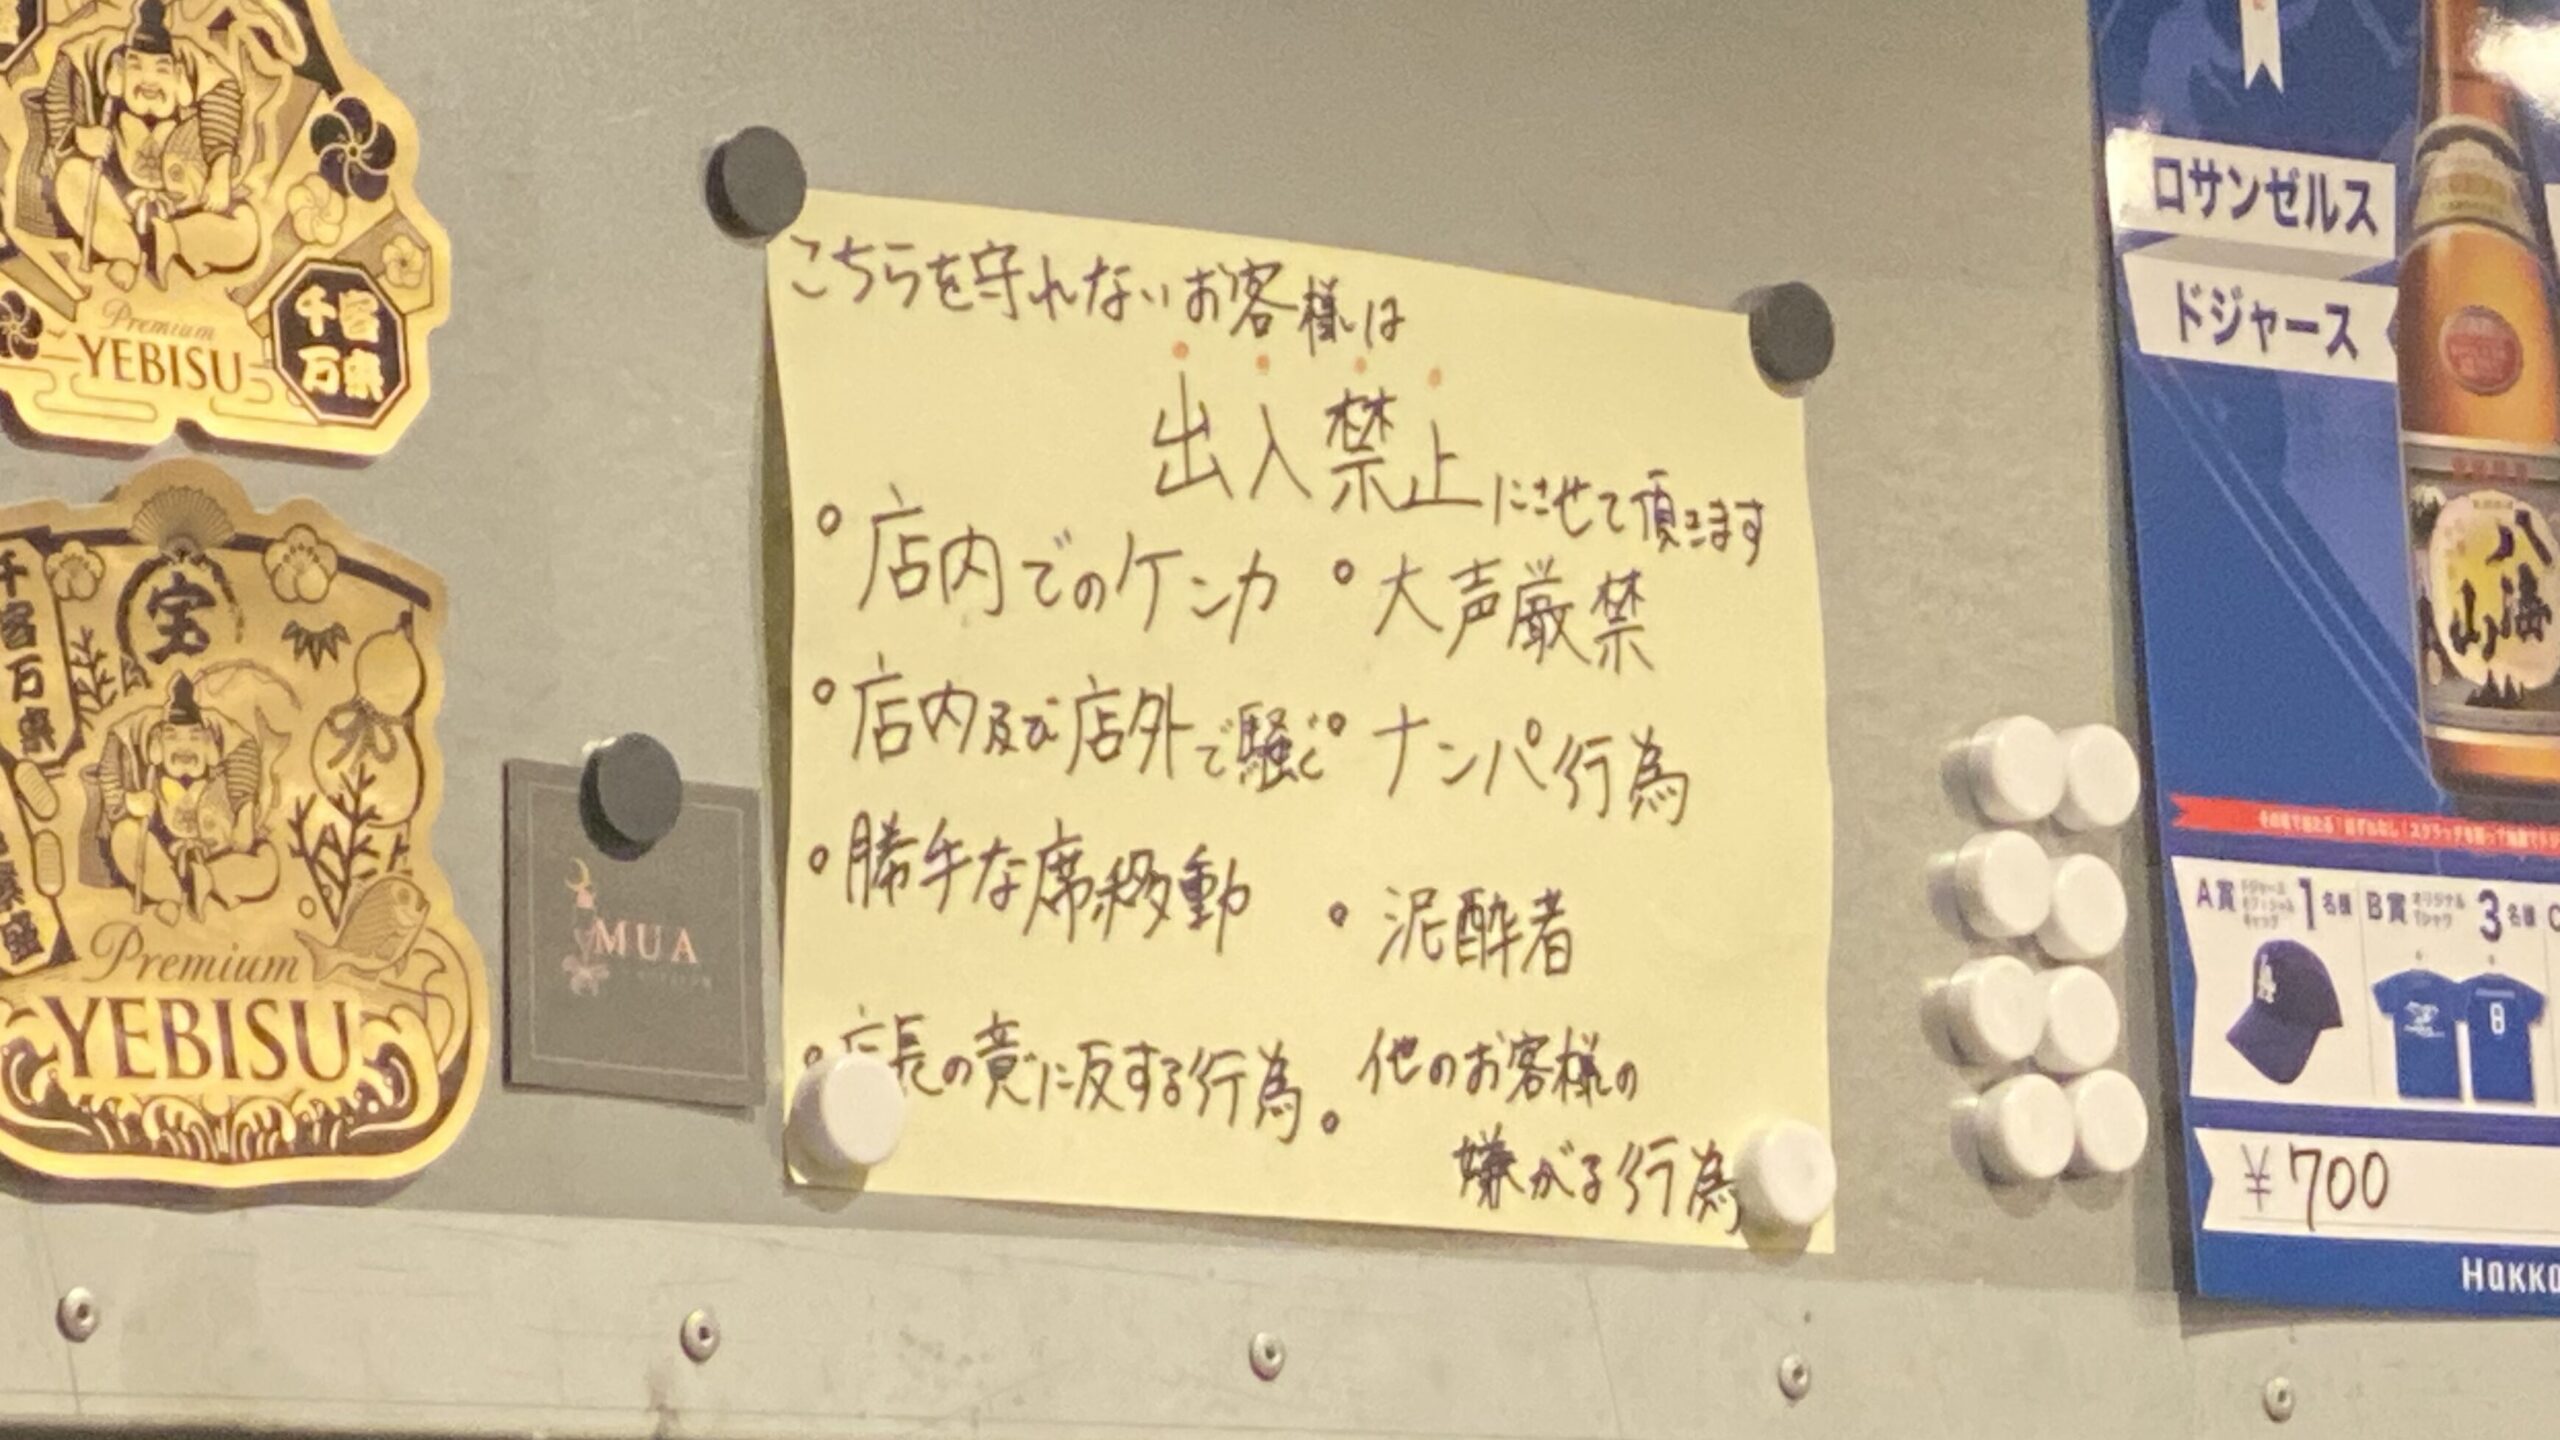 Premium
YEBISU
千客
万来
千客万来
宝
Premium
YEBISU
MUA
こちらを守れないお客様は
出入禁止にさせて頂きます
° 店内でのケンカ
° 大声厳禁
° 店内及び店外で騒ぐ
° ナンパ行為
° 勝手な席移動
° 泥酔者
° 店長の意に反する行為
° 他のお客様の
嫌がる行為
ロサンゼルス
ドジャース
八海山
A賞 1名様 B賞 オリジナルTシャツ 3名様
¥700
Hakka